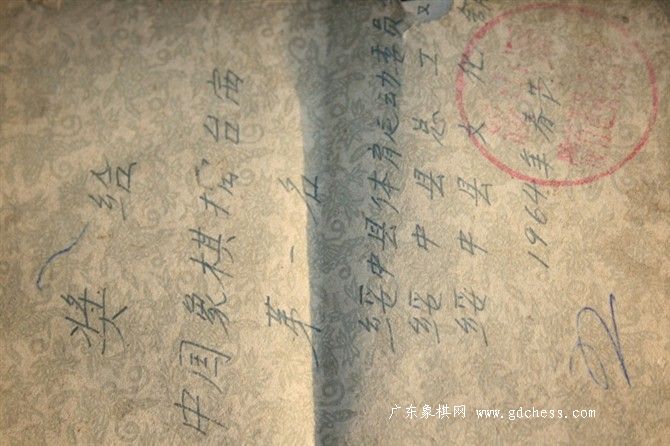 奖给
中国象棋擂台赛
第一名
绥中县体育运动委员
绥中县总工
绥中县文化
1964年春节
广东象棋网 www.gdchess.com